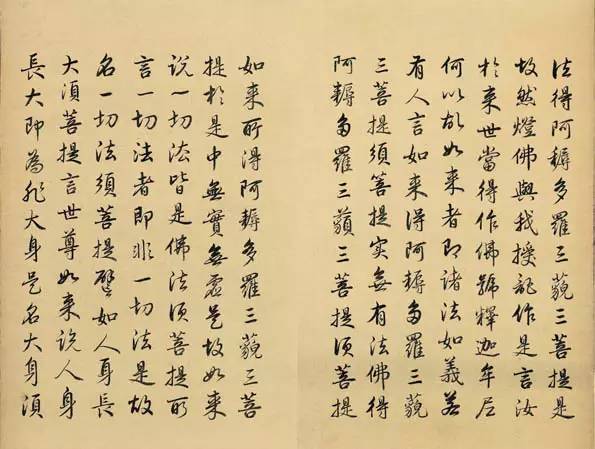 法得阿耨多羅三藐三菩提是
故然燈佛與我授記作是言汝
於来世當得作佛號釋迦牟尼
何以故如来者即諸法如義若
有人言如来得阿耨多羅三藐
三菩提須菩提实無有法佛得
阿耨多羅三藐三菩提須菩提
如来所得阿耨多羅三藐三菩
提於是中無實無虛是故如来
说一切法皆是佛法須菩提所
言一切法者即非一切法是故
名一切法須菩提譬如人身長
大須菩提言世尊如来说人身
長大即為非大身是名大身須